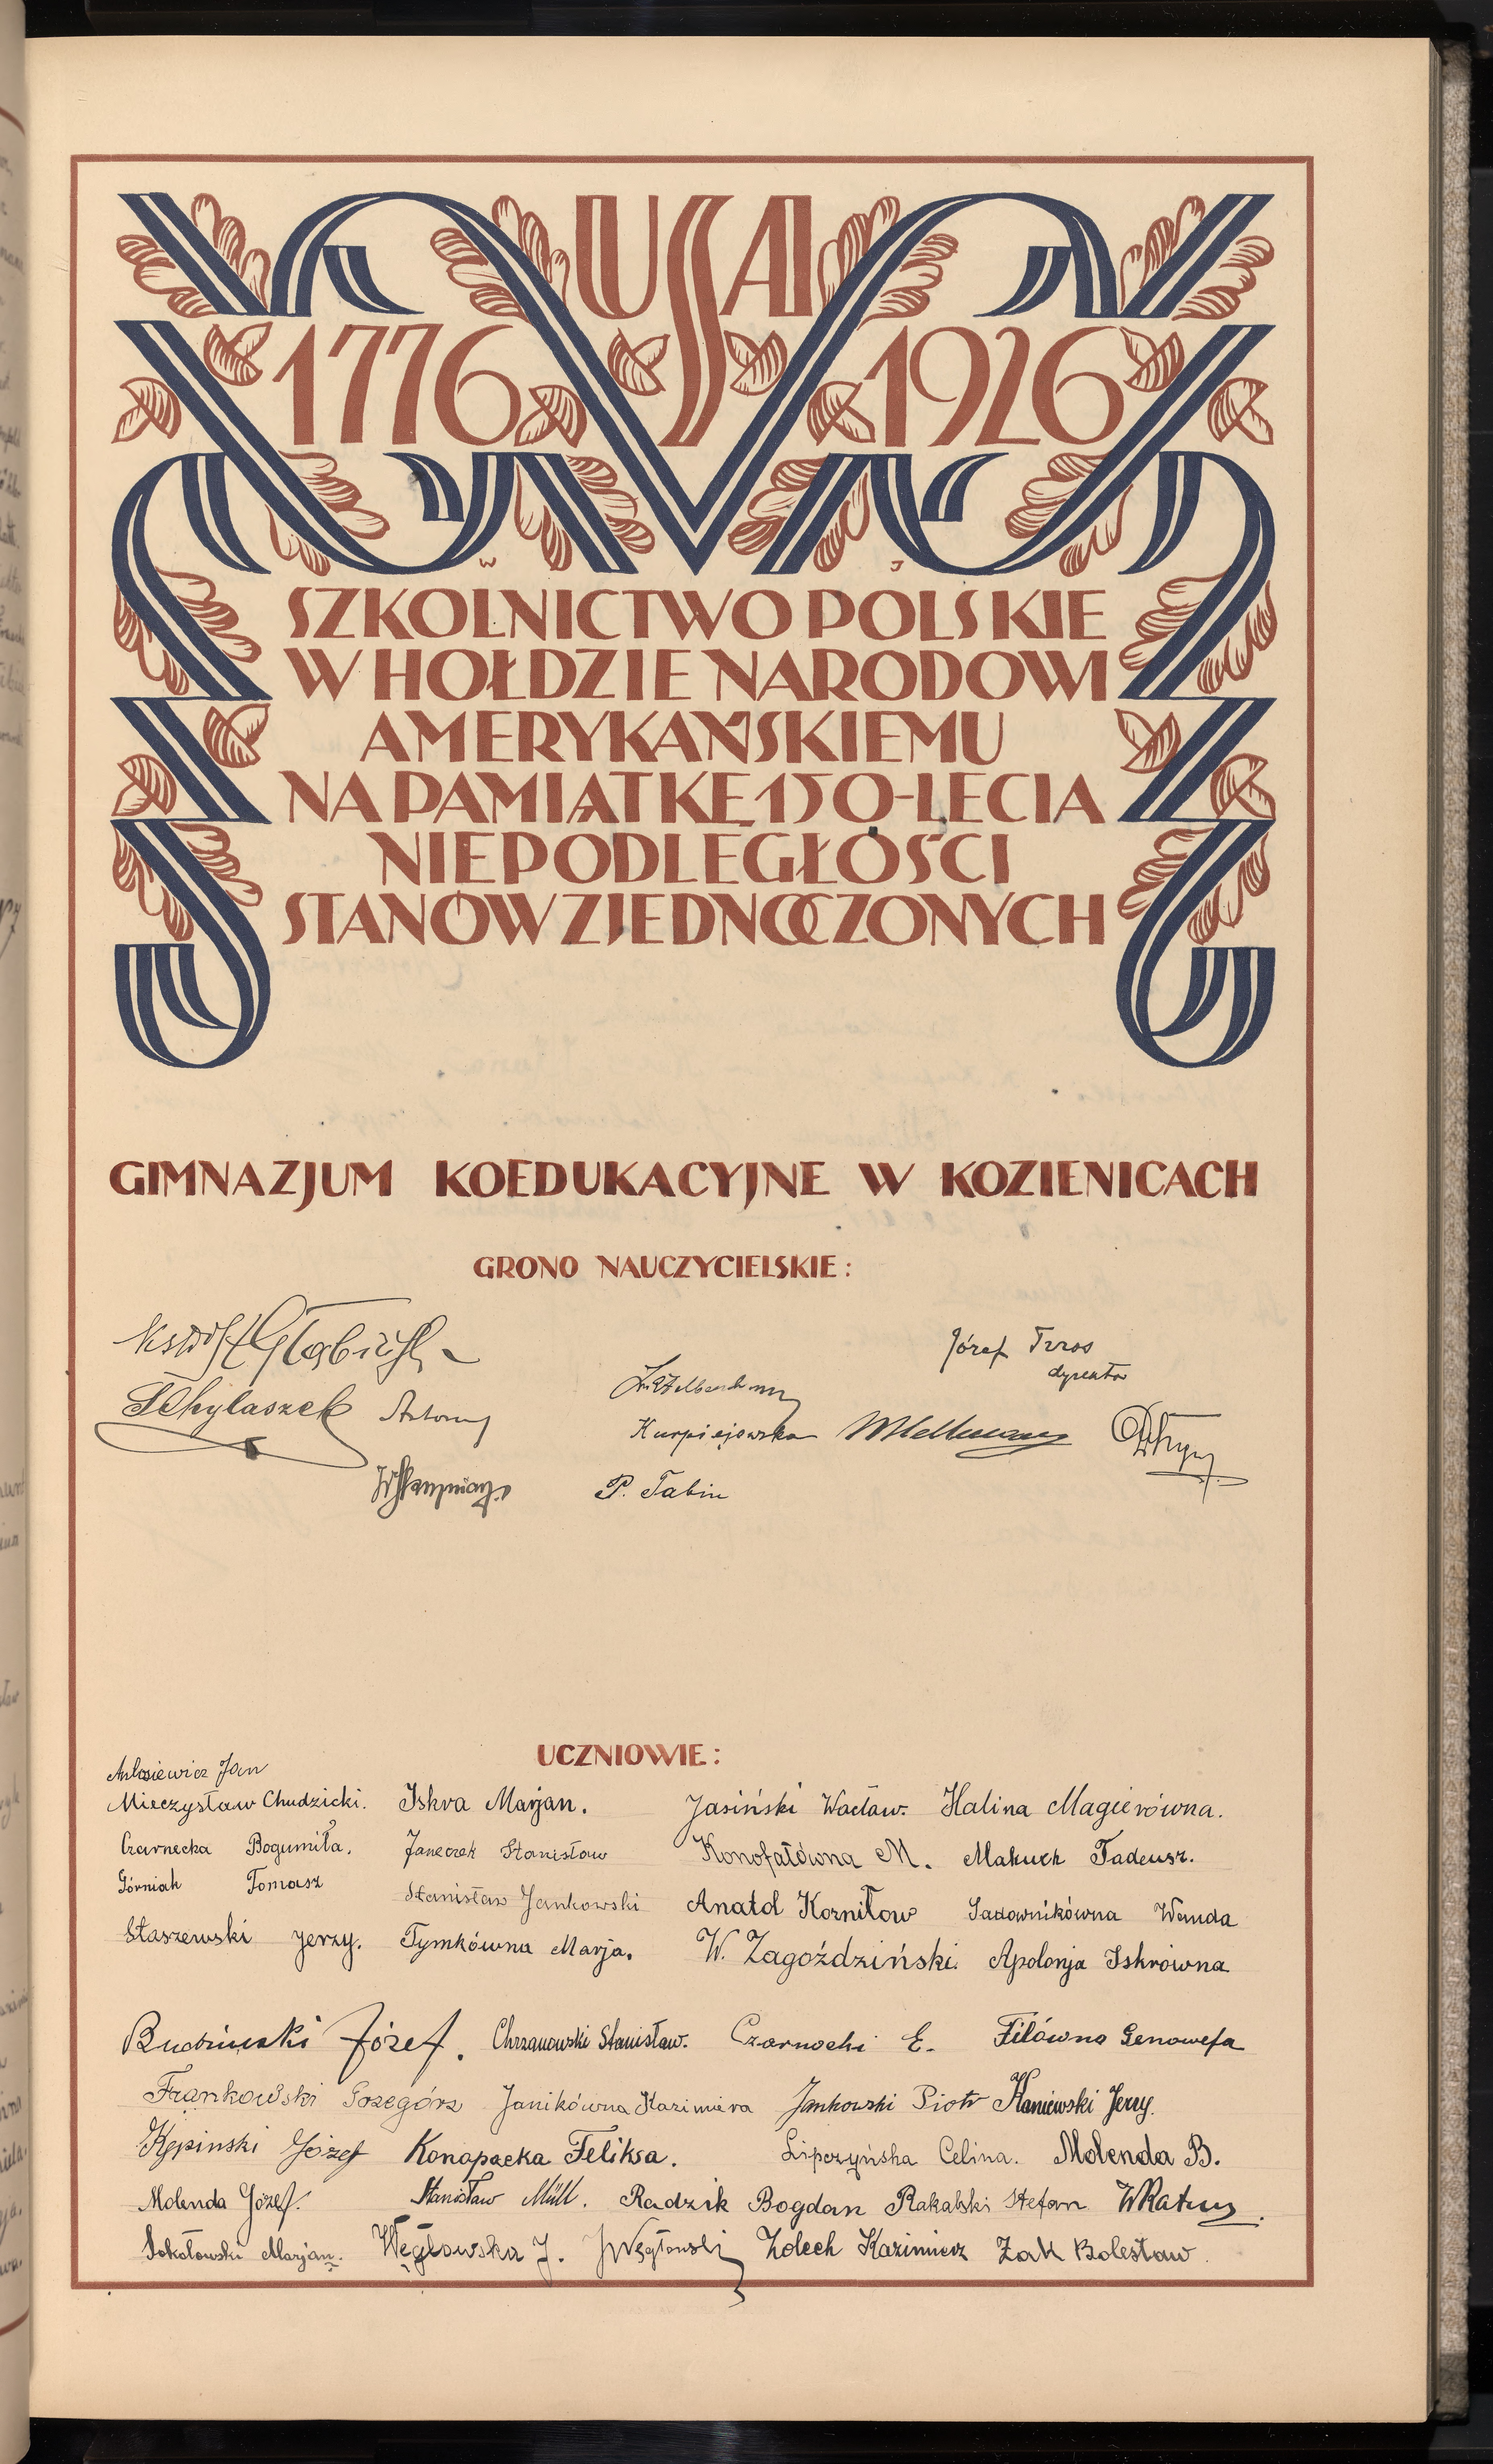 USA
1776 1926
W J
SZKOLNICTWO POLSKIE
W HOŁDZIE NARODOWI
AMERYKAŃSKIEMU
NA PAMIĄTKĘ 150-LECIA
NIEPODLEGŁOŚCI
STANÓW ZJEDNOCZONYCH
GIMNAZJUM KOEDUKACYJNE W KOZIENICACH
GRONO NAUCZYCIELSKIE:
Józef
dyrektor
Chylaszek Antoni
Kurpiejowska
P. Tabin
UCZNIOWIE:
Antosiewicz Jan
Mieczysław Chudzicki. Iskra Marjan. Jasiński Wacław. Halina Magierówna.
Czarnecka Bogumiła. Janeczek Stanisław Konofałówna M. Makuch Tadeusz.
Górniak Tomasz Stanisław Jankowski Anatol Korniłow Sadownikówna Wanda
Staszewski Jerzy. Tymkówna Marja. W. Zagoździński. Apolonja Iskrówna
Budziński Józef. Chrzanowski Stanisław. Czarnocki E. Filówna Genowefa
Frankowski Grzegórz Janikówna Kazimiera Jankowski Piotr Kaniewski Jerzy.
Kępinski Józef Konopacka Feliksa. Lipczyńska Celina. Molenda B.
Molenda Józef. Stanisław Müll. Radzik Bogdan Rakalski Stefan
Sokołowski Marjan. Węgłowska J. J Węgłowski Zolech Kazimierz Żak Bolesław.